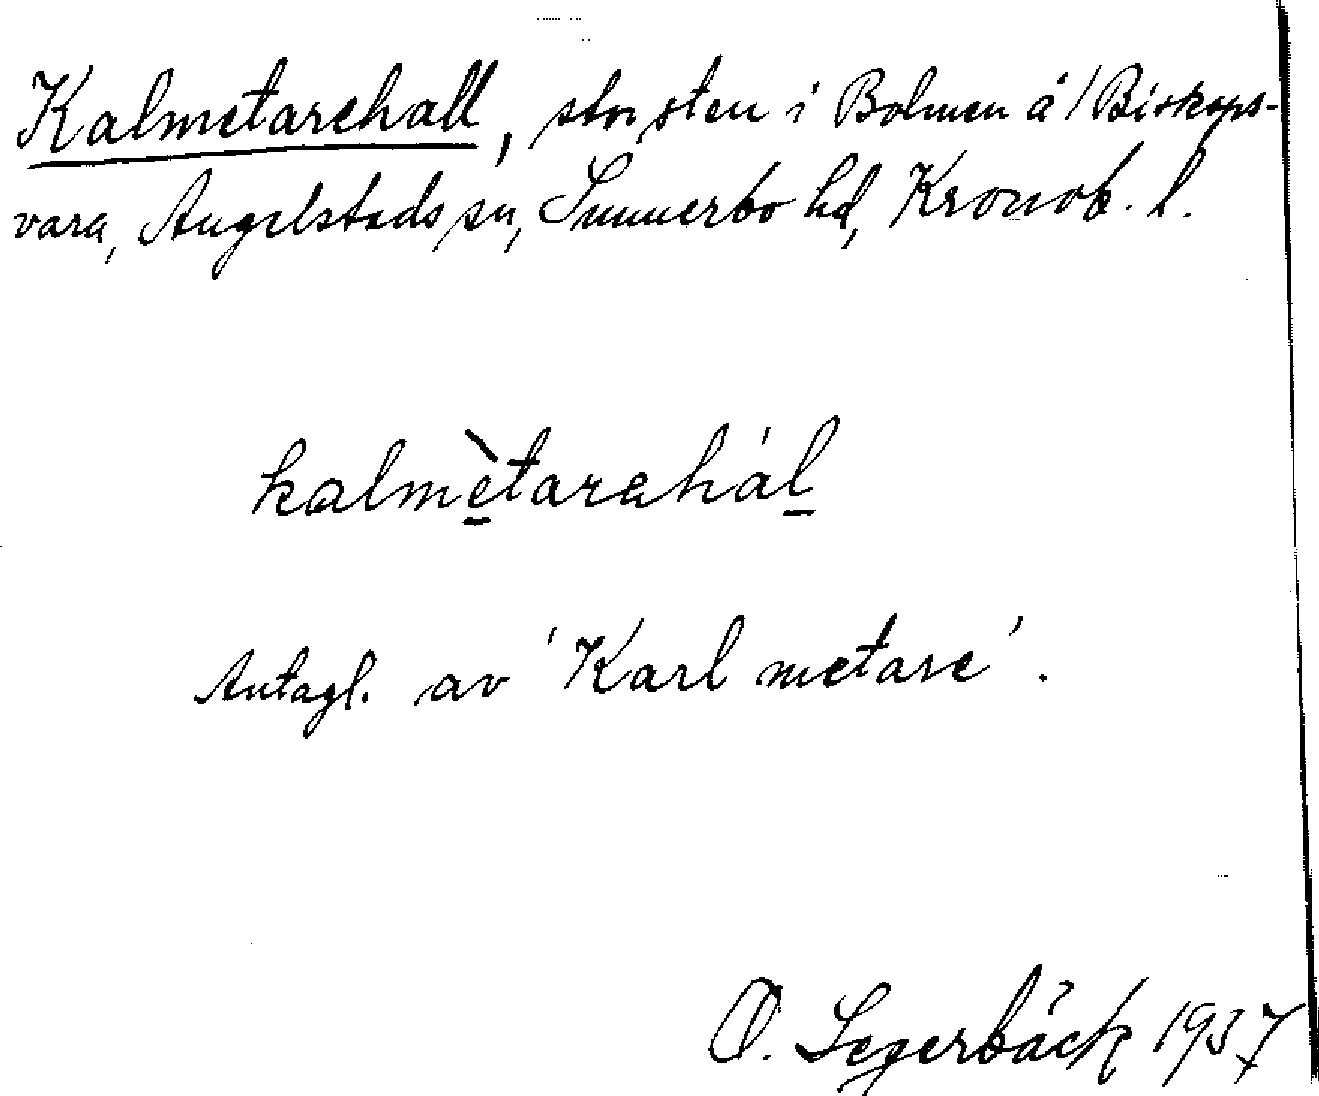 Kalmetarehall, stor sten i Bolmen å / Biskops-
vara, Angelstads sn, Sunnerbo hd, Kronob. l.
kalmètarahál
Antagl. av 'Karl metare'.
O. Segerbäck 1937